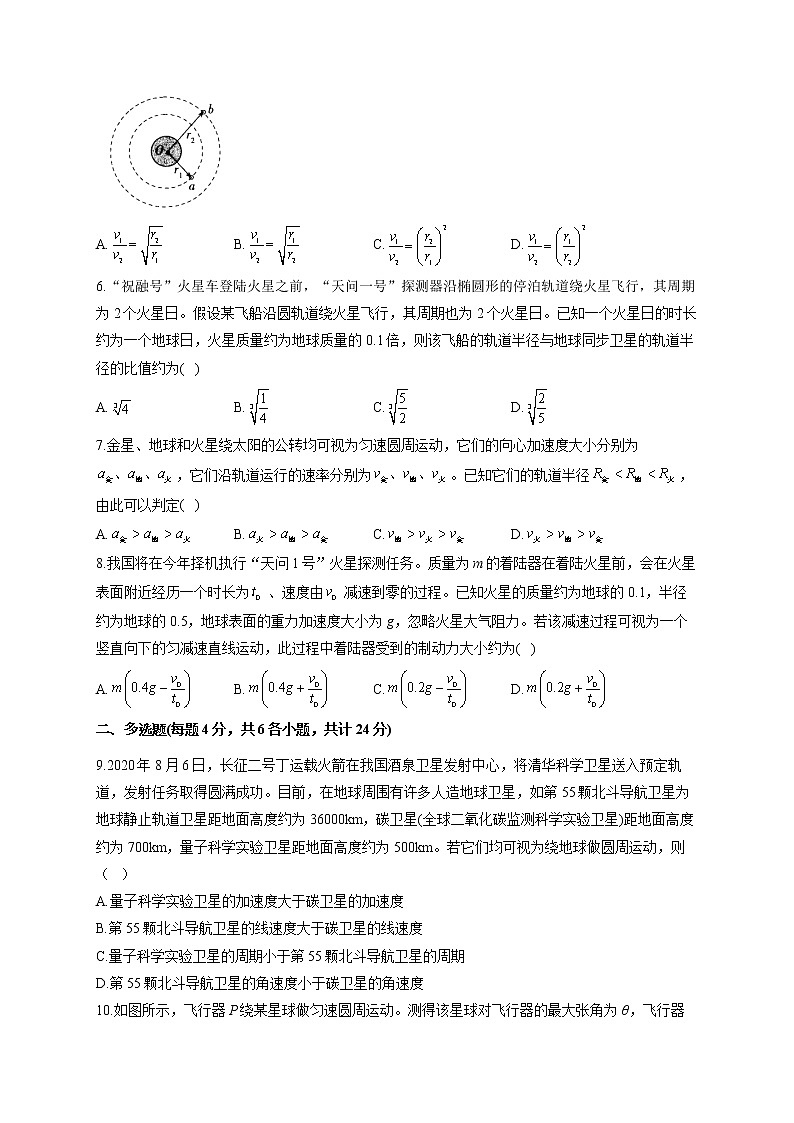 b
r₂
O
r₁
a
A. v₁/v₂ = √(r₂/r₁) B. v₁/v₂ = √(r₁/r₂) C. v₁/v₂ = (r₂/r₁)² D. v₁/v₂ = (r₁/r₂)²
6.“祝融号”火星车登陆火星之前，“天问一号”探测器沿椭圆形的停泊轨道绕火星飞行，其周期
为 2个火星日。假设某飞船沿圆轨道绕火星飞行，其周期也为 2个火星日。已知一个火星日的时长
约为一个地球日，火星质量约为地球质量的 0.1倍，则该飞船的轨道半径与地球同步卫星的轨道半
径的比值约为( )
A. ∛4 B. ∛(1/4) C. ∛(5/2) D. ∛(2/5)
7.金星、地球和火星绕太阳的公转均可视为匀速圆周运动，它们的向心加速度大小分别为
a金、a地、a火，它们沿轨道运行的速率分别为v金、v地、v火。已知它们的轨道半径 R金 < R地 < R火，
由此可以判定( )
A. a金 > a地 > a火 B. a火 > a地 > a金 C. v地 > v火 > v金 D. v火 > v地 > v金
8.我国将在今年择机执行“天问 1号”火星探测任务。质量为 m的着陆器在着陆火星前，会在火星
表面附近经历一个时长为 t₀ 、速度由 v₀ 减速到零的过程。已知火星的质量约为地球的 0.1，半径
约为地球的 0.5，地球表面的重力加速度大小为 g，忽略火星大气阻力。若该减速过程可视为一个
竖直向下的匀减速直线运动，此过程中着陆器受到的制动力大小约为( )
A. m(0.4g − v₀/t₀) B. m(0.4g + v₀/t₀) C. m(0.2g − v₀/t₀) D. m(0.2g + v₀/t₀)
二、多选题(每题 4分，共 6各小题，共计 24分)
9.2020年 8月 6日，长征二号丁运载火箭在我国酒泉卫星发射中心，将清华科学卫星送入预定轨
道，发射任务取得圆满成功。目前，在地球周围有许多人造地球卫星，如第 55颗北斗导航卫星为
地球静止轨道卫星距地面高度约为 36000km，碳卫星(全球二氧化碳监测科学实验卫星)距地面高度
约为 700km，量子科学实验卫星距地面高度约为 500km。若它们均可视为绕地球做圆周运动，则
（ ）
A.量子科学实验卫星的加速度大于碳卫星的加速度
B.第 55颗北斗导航卫星的线速度大于碳卫星的线速度
C.量子科学实验卫星的周期小于第 55颗北斗导航卫星的周期
D.第 55颗北斗导航卫星的角速度小于碳卫星的角速度
10.如图所示，飞行器 P绕某星球做匀速圆周运动。测得该星球对飞行器的最大张角为 θ，飞行器